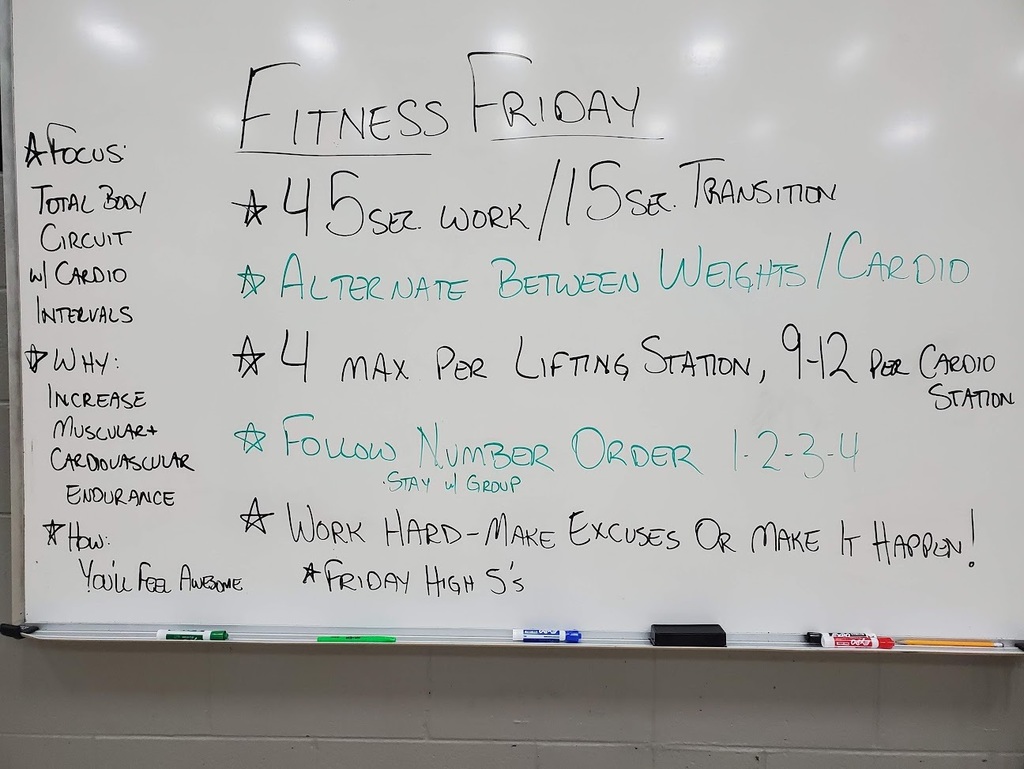 Fitness Friday
☆ Focus:
Total Body
Circuit
w/ Cardio
Intervals
☆ Why:
Increase
Muscular +
Cardiovascular
Endurance
☆ How:
You'll Feel Awesome
☆ 45 sec. work / 15 sec. Transition
☆ Alternate Between Weights / Cardio
☆ 4 max per Lifting Station, 9-12 per Cardio
Station
☆ Follow Number Order 1-2-3-4
· Stay w/ Group
☆ Work Hard - Make Excuses Or Make It Happen!
☆ Friday High 5's